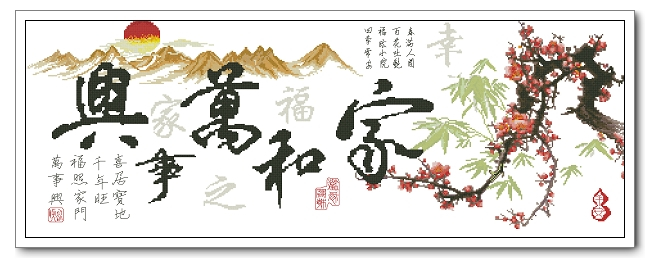 家和萬事興
春滿人間
百花吐艷
福臨小院
四季常安
幸
福
之
家
喜居寶地
千年旺
福照家門
萬事興